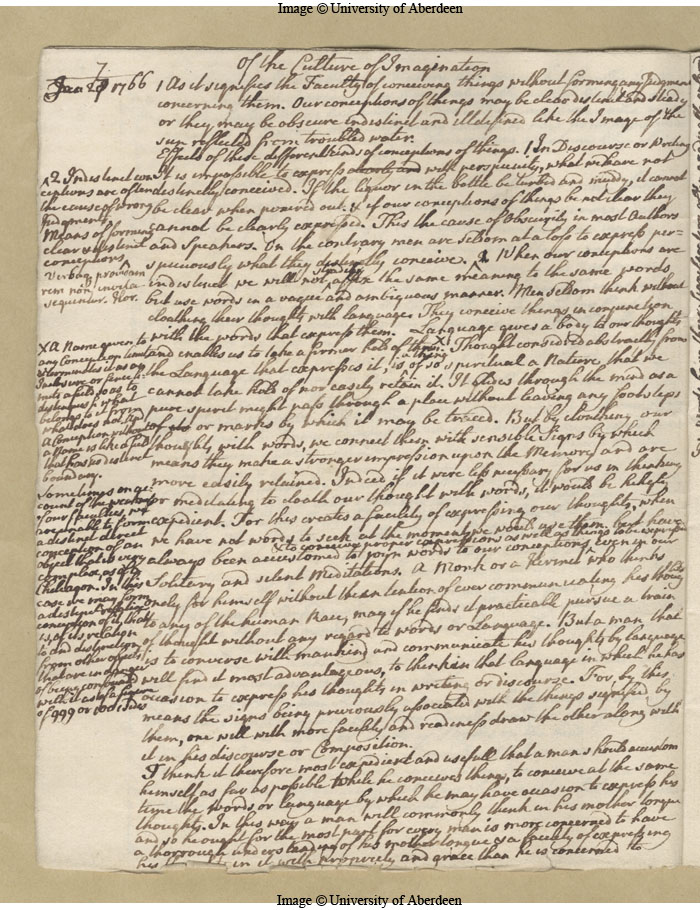 Image © University of Aberdeen
7
Of the Culture of Imagination
Jan 29 1766
1 As it signifies the Faculty of conceiving things without forming any Judgment
concerning them. Our conceptions of things may be clear distinct and steady
or they may be obscure indistinct and ill defined like the Image of the
sun reflected from troubled water.
Effects of these different kinds of conceptions of things. 1 In Discourse or Writing
It is impossible to express clearly and with perspicuity, what we have not
distinctly conceived. If the liquor in the bottle be turbid and muddy, it cannot
be clear when poured out. & if our conceptions of things be not clear they
cannot be clearly expressed. This the cause of Obscurity in most Authors
and Speakers. On the contrary men are seldom at a loss to express per=
spicuously what they distinctly conceive. When our conceptions are
indistinct we will not steadily affix the same meaning to the same words,
but use words in a vague and ambiguous manner. Men seldom think without
cloathing their thoughts with language. They conceive things in conjunction
with the words that express them. Language gives a body to our thoughts
and enables us to take a firmer hold of them. X Thought considered abstractly from
the Language that expresses it, is a thing of so spiritual a Nature, that we
cannot take hold of nor easily retain it. It glides through the mind as a
pure spirit might pass through a place without leaving any footsteps
or marks by which it may be traced. But by cloathing our
thoughts with words, we connect them with sensible Signs by which
means they make a stronger impression upon the Memory and are
more easily retained. Indeed if it were less necessary for us in thinking
or meditating to cloath our thought with words, it would be highly
expedient. For this creates a facility of expressing our thoughts, when
we have not words to seek at the moment we would use them. but have
always been accustomed X to conceive proper expressions as well as things to join words to our conceptions even in our
Solitary and silent Meditations. A Monk or a Hermit who thinks
onely for himself without the intention of ever communicating his thoughts
to any of the human Race, may if he finds it practicable pursue a train
of thought without any regard to words or Language. But a man that
is to converse with mankind and communicate his thoughts by language
will find it most advantageous, to think in that language in which he has
occasion to express his thoughts in writing or discourse. For by this
means the signs being previously associated with the things signified by
them, one will with more facility and readiness draw the other along with
it in his discourse or Composition.
I think it therefore most expedient and usefull that a man should accustom
himself as far as possible while he conceives things, to conceive at the same
time the words or language by which he may have occasion to express his
thoughts. In this way a man will commonly think in his mother tongue
and so he ought for the most part for every man is more concerned to have
a thorough understanding of his mother tongue & a facility of expressing
his in it with propriety and grace than he is concerned to
X2 Indistinct con
ceptions are often
the cause of wrong
Judgments,
Means of forming
clear & distinct
conceptions
Verbaq provisam
rem non invita
sequentur. Hor.
X A Name given to
any Conception
determines it as
Inclosure or fence li=
mits a field so as to
distinguish what
belongs to it from
what does not.
A Conception without
a Name is like a field
that has no distinct
boundary.
Sometimes on ac=
count of the weakness
of our faculties, we
are unable to form
a distinct direct
conception of an
object that is very
complex, as of a
Chiliagon. In this
case we may form
a distinct relative
conception of it, that
is, of its relation
to and distinction
from other objects,
that are in danger
of being confounded
with it as of a figure
of 999 or 1001 sides
Image © University of Aberdeen